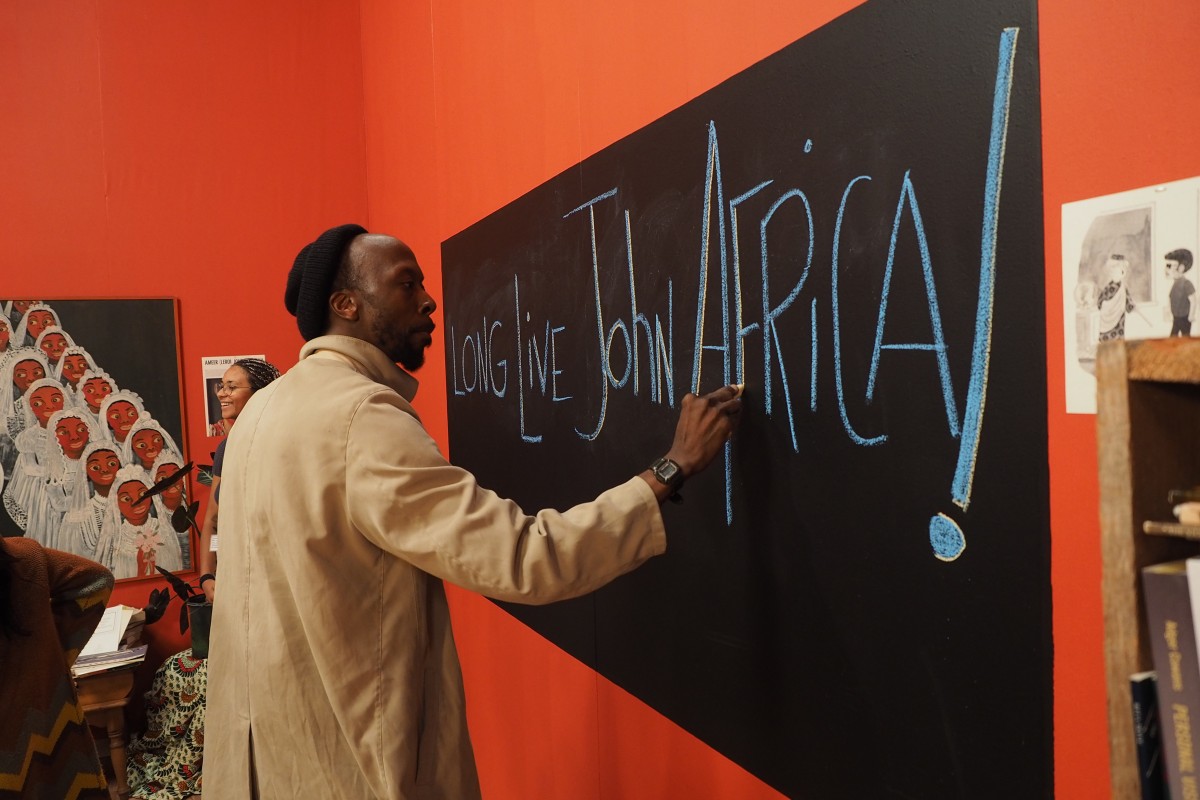 LONG LIVE JohN AFRICA!